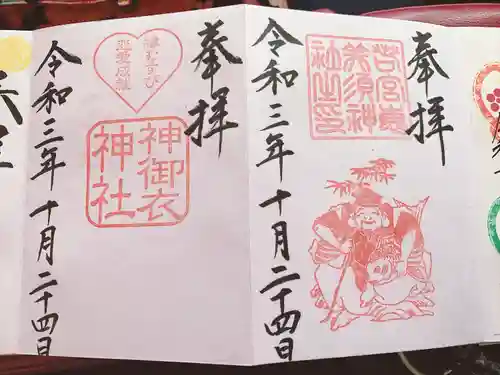 奉拝
若宮恵
美須神
社之印
令和三年十月二十四日
奉拝
縁むすび
恋愛成就
神御衣
神社
令和三年十月二十四日